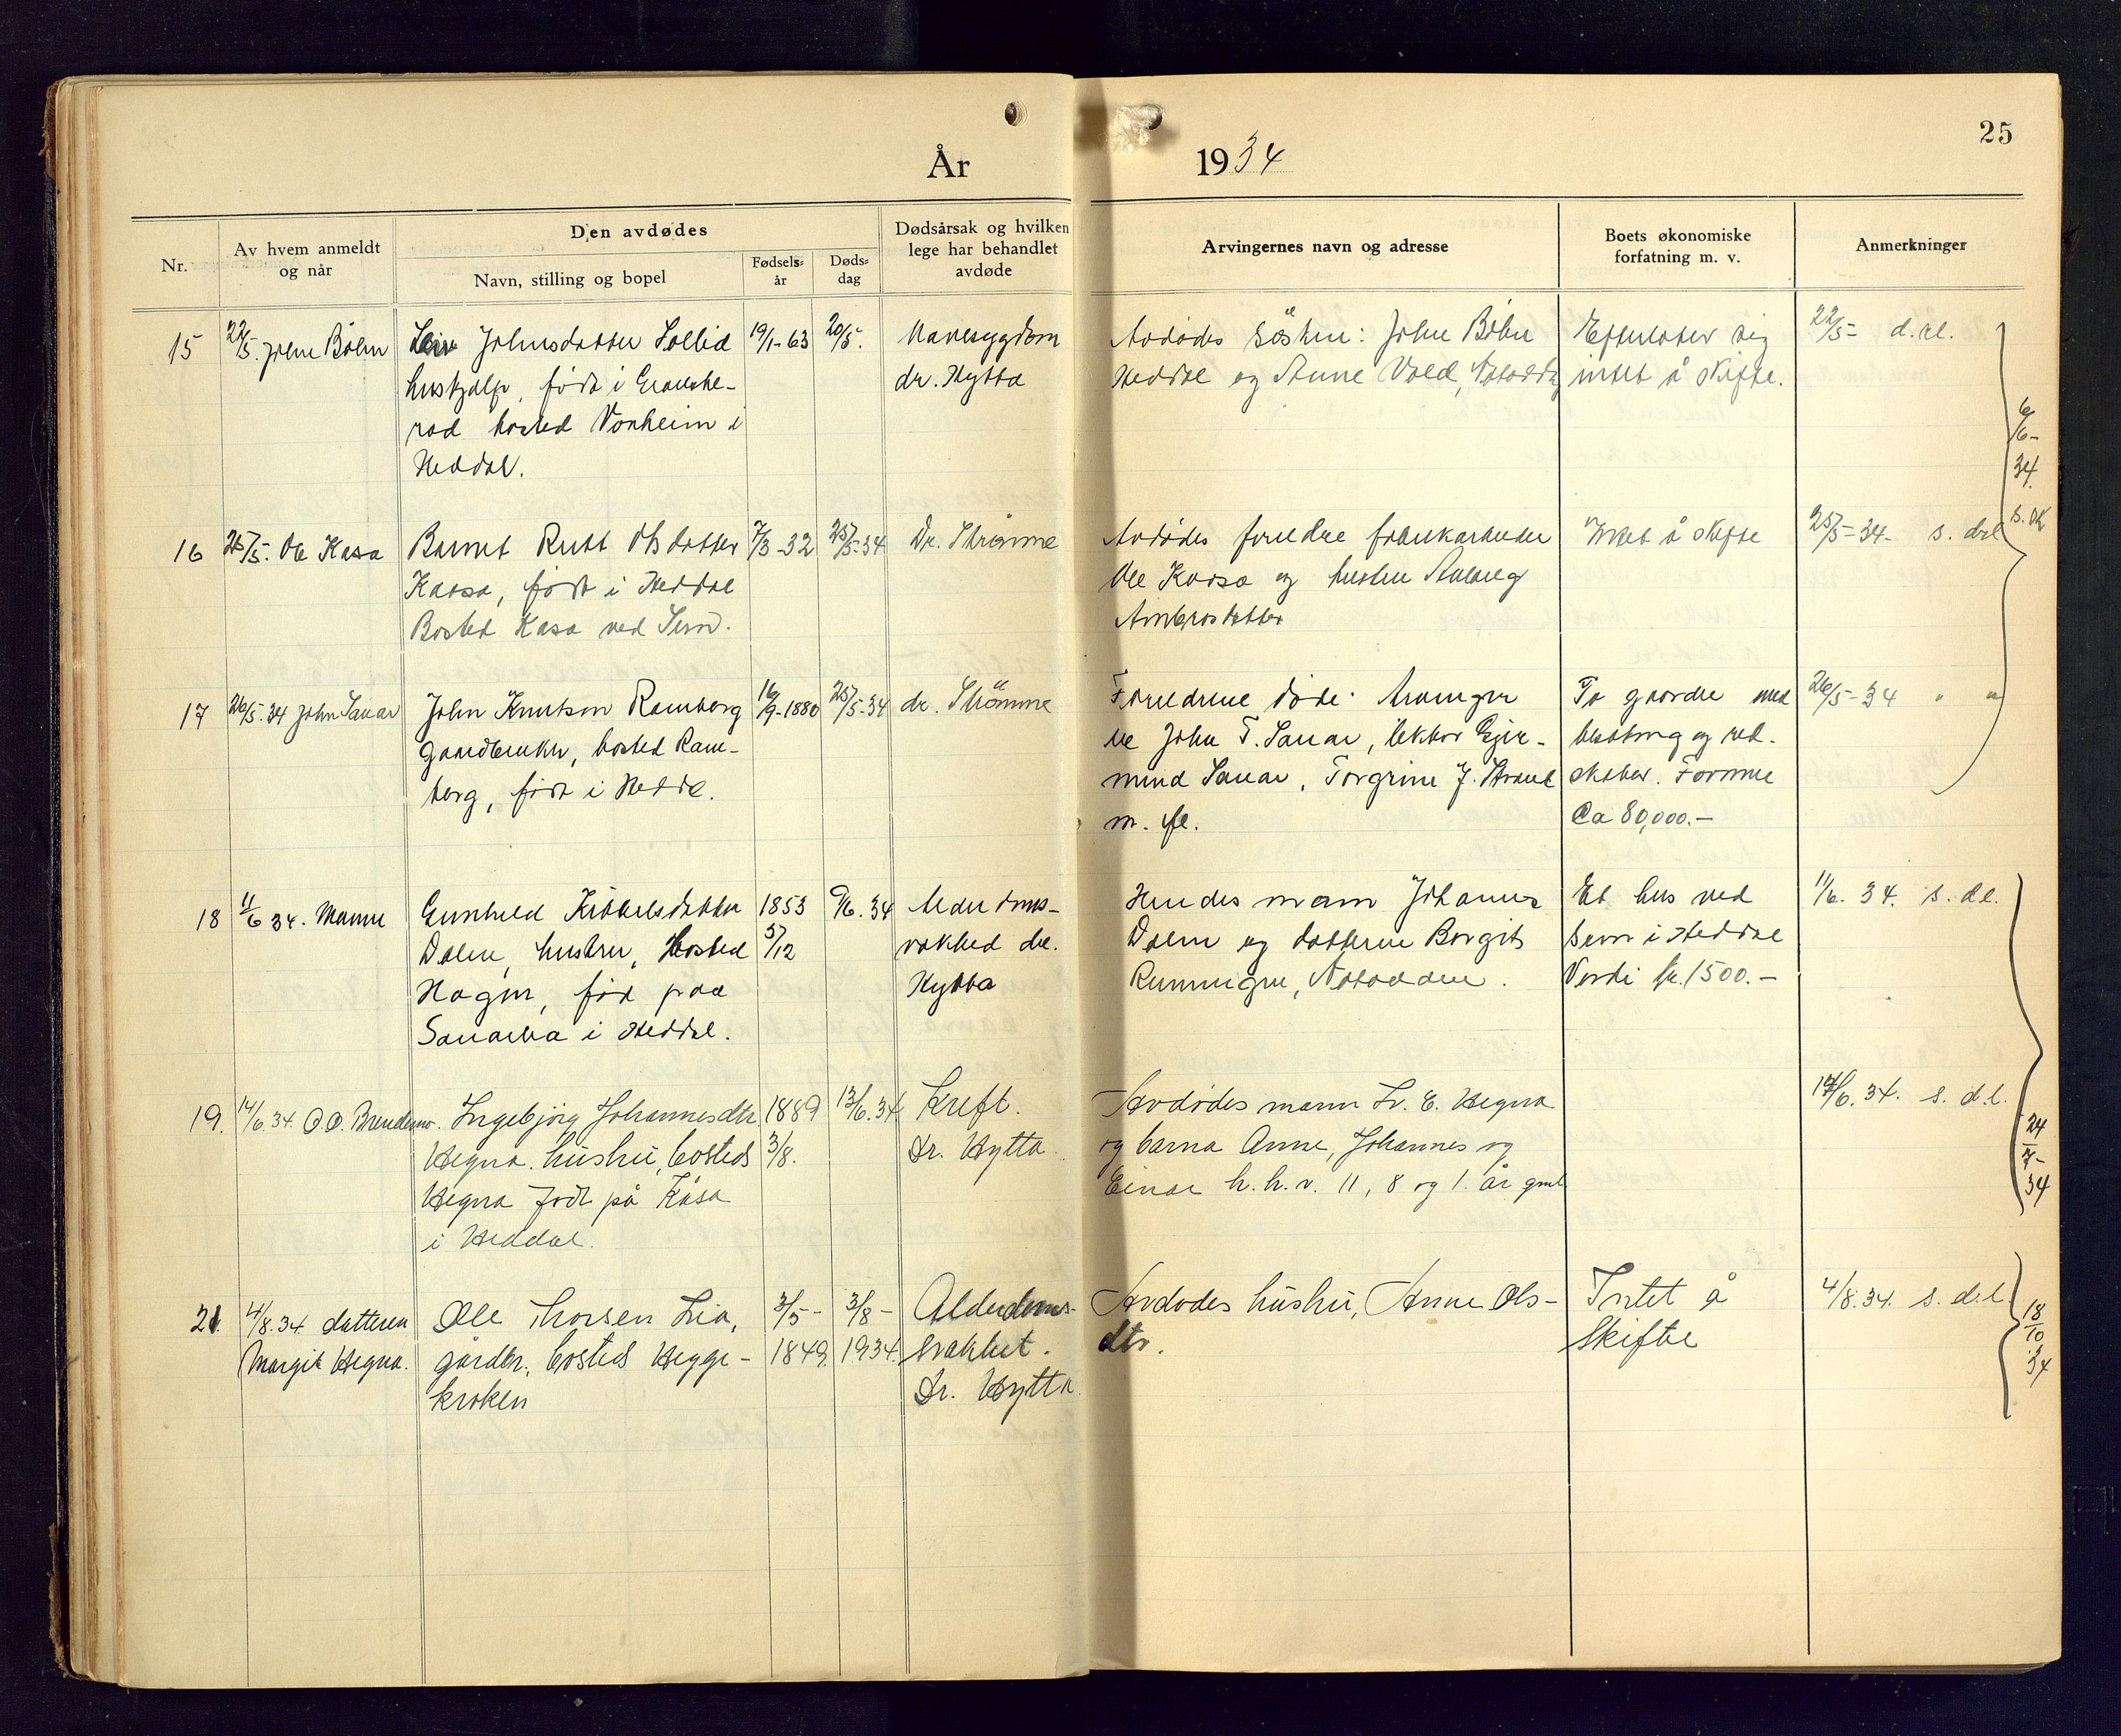 25
År 1934
Nr.
Av hvem anmeldt
og når
Den avdødes
Navn, stilling og bopel
Fødsels-
år
Døds-
dag
Dødsårsak og hvilken
lege har behandlet
avdøde
Arvingernes navn og adresse
Boets økonomiske
forfatning m. v.
Anmerkninger
15
22/5. John Bøhn
Johnsdatter Sollid
hushjelp, født i Granshe-
rad bosted Vonheim i
Heddal.
19/1-63
20/5.
Mavesygdom
dr. Hytta
Avdødes søsken: John Bøhn
Heddal og Anne Vold, Notodden
Efterlater sig
intet å skifte.
22/5- d.ll.
6/6-
34.
16
25/5. Ole Kasa
Barnet Rutt Olsdatter
Kaasa, født i Heddal
Bosted Kasa ved Sem.
7/3-32
25/5-34
Dr. Strømme
Avdødes foreldre fabrikarbeider
Ole Kaasa og hustru Aslaug
Ambrosdatter
Intet å skifte
25/5-34. s. d.l.
17
26/5.34 John Sauar
John Knutson Ramberg
Gaardbruker, bosted Ram-
berg, født i Heddal.
16/9-1880
25/5-34
dr. Strømme
Foreldrene døde. Arvinger
er John T. Sauar, lektor Gjer-
mund Sauar, Torgrim J. Strand
m. fl.
To gaarde med
besetning og red-
skaber. Formue
Ca 80,000.-
26/5-34 " "
18
11/6 34. Mannen
Gunhild Kittelsdatter
Dalen, hustru, bosted
Hagen, fød paa
Sauarlia i Heddal.
1853
5/12
9/6.34
Alderdoms-
vakhed dr.
Hytta
Hendes mann Johannes
Dalen og datteren Borgit
Rønningen, Notodden.
Et hus ved
Sem i Heddal
Verdi kr. 1500.-
11/6. 34. s. d.l.
19.
14/6.34. O.O. Brendemo.
Ingebjørg Johannesdtr.
Hegna. hustru, bosted
Hegna født på Kåsa
i Heddal.
1889
3/8.
13/6.34
Kreft.
Dr. Hytta.
Avdødes mann Hr. E. Hegna
og barna Anne, Johannes og
Einar h.h.v. 11, 8 og 1. år gml
14/6.34. s. d.l.
24
7-
34
21.
4/8.34. datteren
Margit Hegna.
Ole Thorsen Lia,
gårdbr. bosted Hegge-
kroken
3/5-
1849.
3/8-
1934.
Alderdoms-
svakhet.
Dr. Hytta.
Avdødes hustru, Anne Ols-
dtr.
Intet å
skifte
4/8.34. s. d.l.
18
10
34